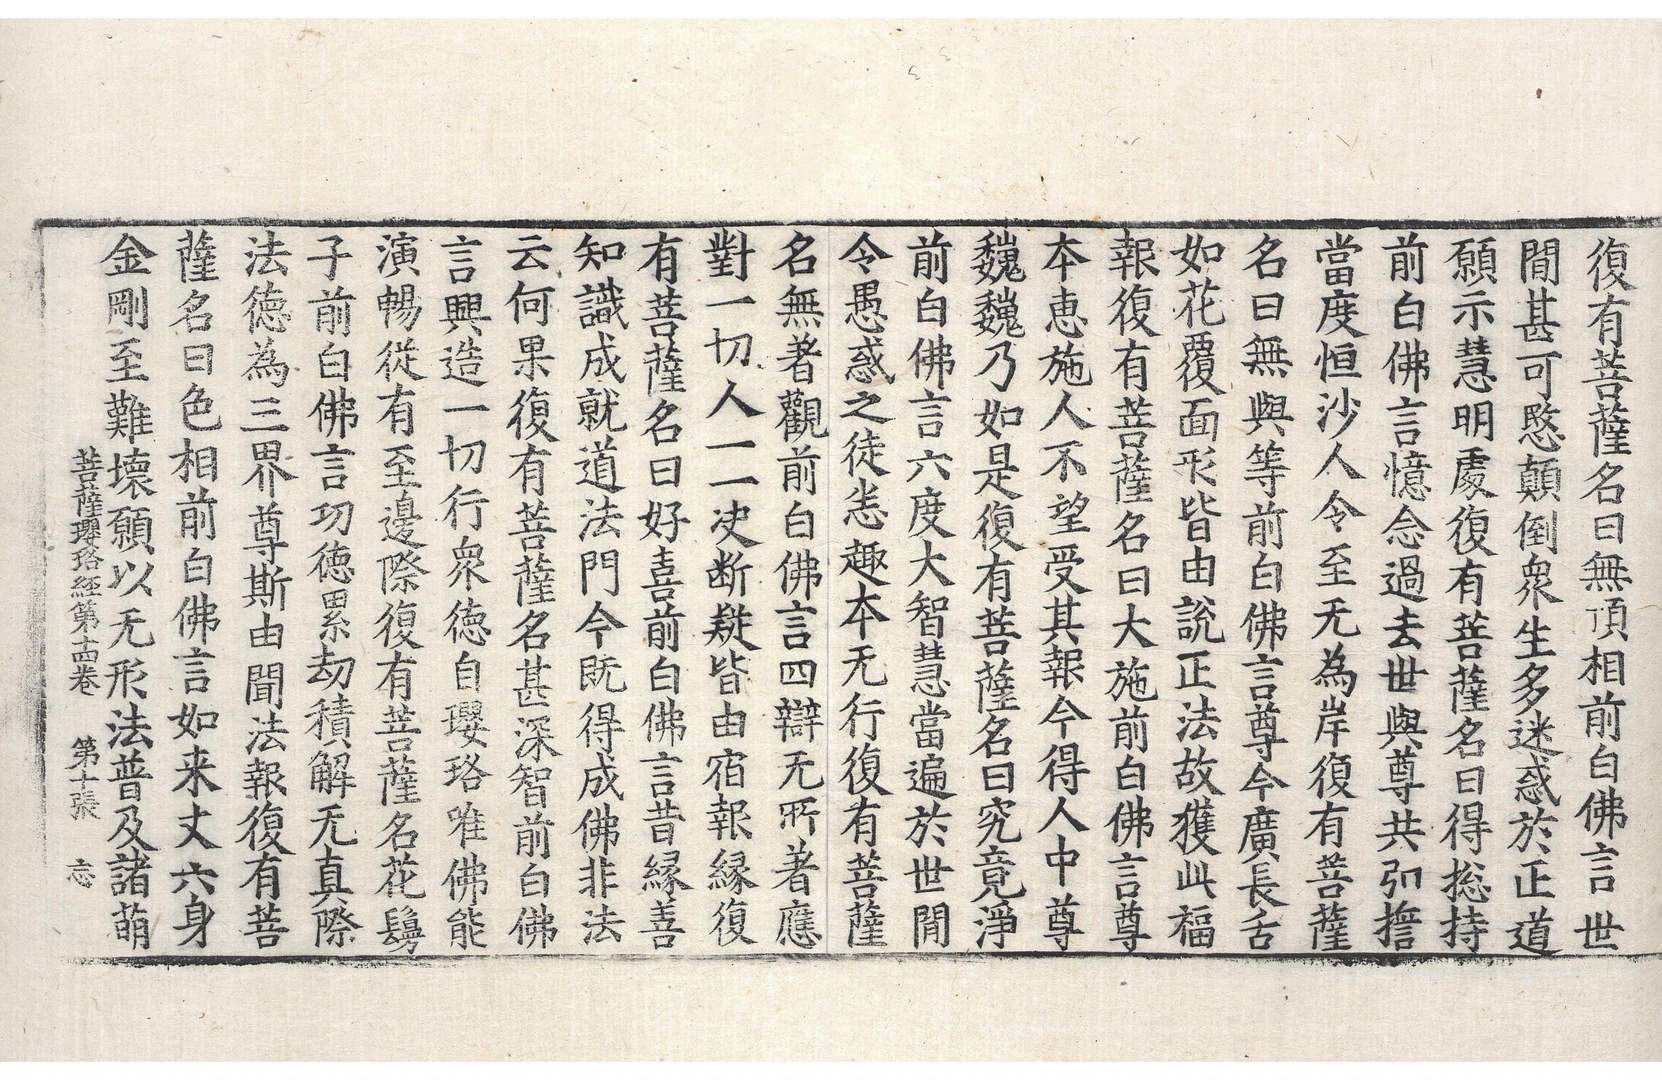 復有菩薩名曰無頂相前白佛言世
閒甚可愍顛倒衆生多迷惑於正道
願示慧明處復有菩薩名曰得捴持
前白佛言憶念過去世與尊共弘誓
當度恒沙人令至无為岸復有菩薩
名曰無與等前白佛言尊今廣長舌
如花覆面形皆由說正法故獲此福
報復有菩薩名曰大施前白佛言尊
本恵施人不望受其報今得人中尊
巍巍乃如是復有菩薩名曰究竟淨
前白佛言六度大智慧當遍於世閒
令愚惑之徒恙趣本无行復有菩薩
名無著觀前白佛言四辯无所著應
對一切人一一决断疑皆由宿報縁復
有菩薩名曰好喜前白佛言昔縁善
知識成就道法門今既得成佛非法
云何果復有菩薩名甚深智前白佛
言興造一切行衆德自瓔珞唯佛能
演暢從有至邊際復有菩薩名花鬘
子前白佛言功德累劫積解无真際
法德為三界尊斯由聞法報復有菩
薩名曰色相前白佛言如来丈六身
金剛至難壞願以无形法普及諸萌
菩薩瓔珞經第十四卷　第十張　忘